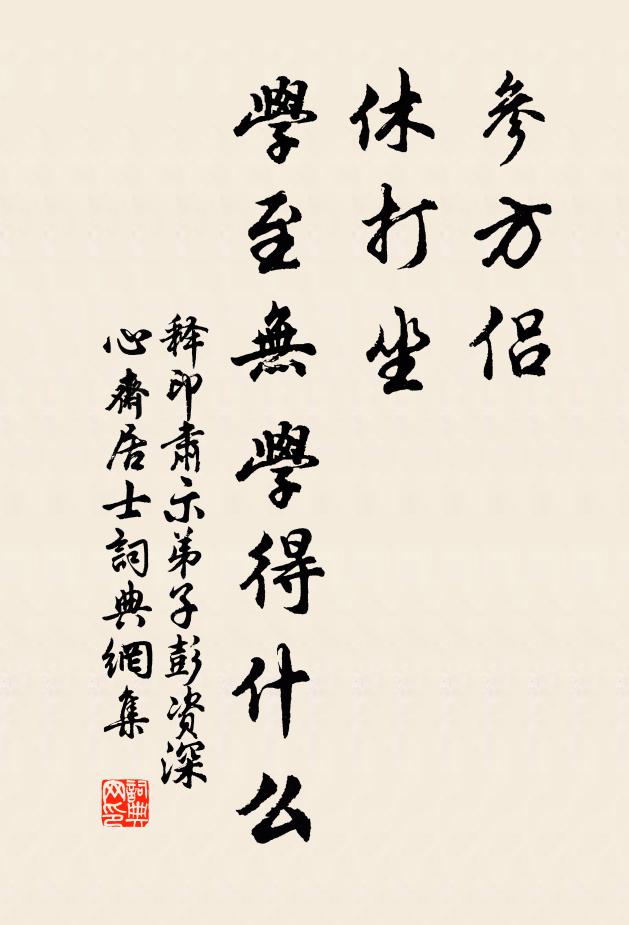 參方侣
休打坐
學至無學得什么
释印肃示弟子彭资深
心齋居士詞典網集
詞典网印